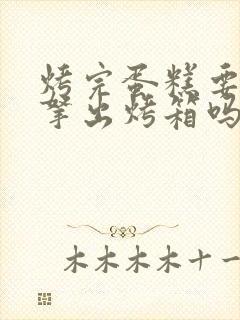 烤完蛋糕要
拿出烤箱吗
木木木木十一